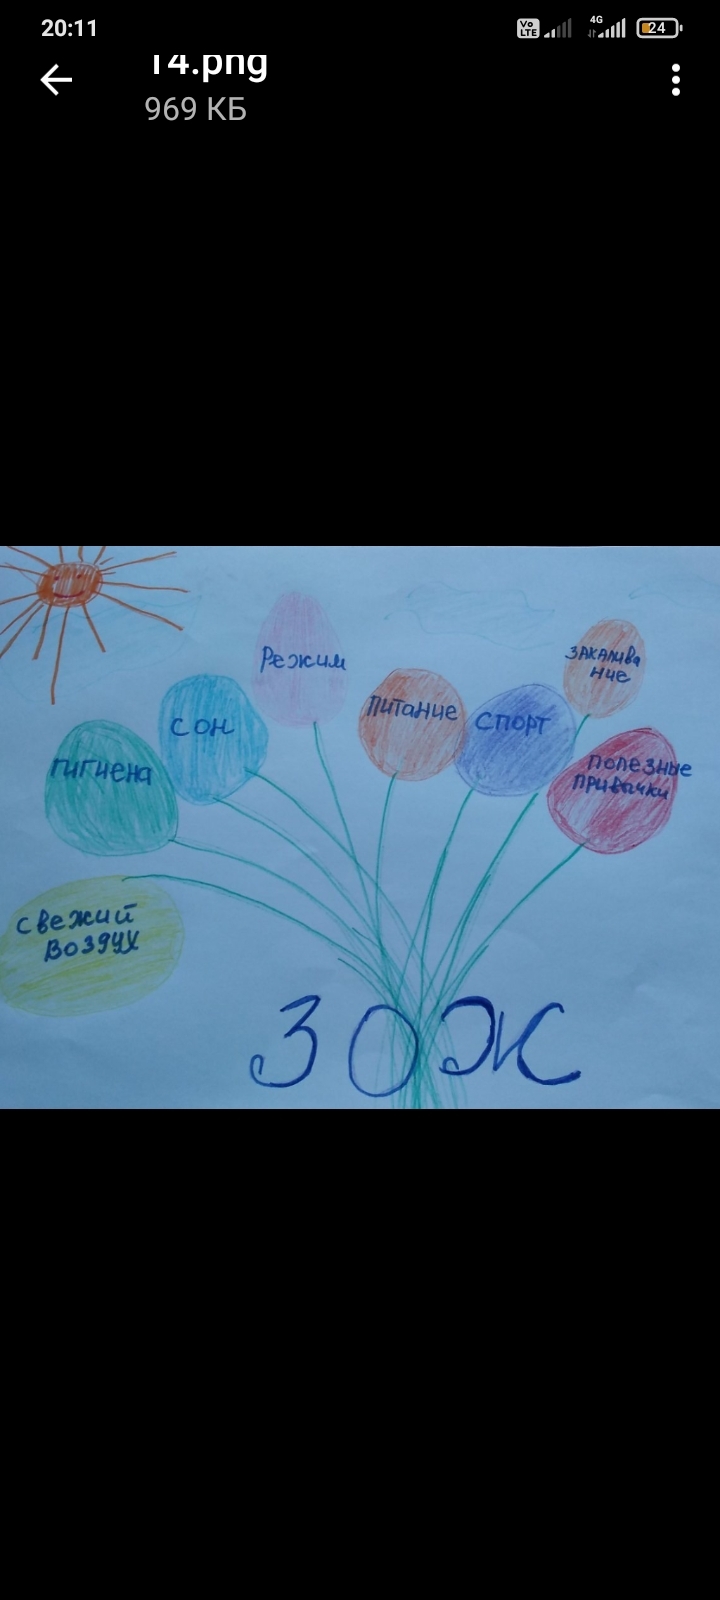 20:11
Vo
LTE
4G
24
14.png
969 КБ
Режим
ЗАКАЛИВА
НИЕ
СОН
ПИТАНИЕ
СПОРТ
ГИГИЕНА
ПОЛЕЗНЫЕ
ПРИВЫЧКИ
СВЕЖИЙ
ВОЗДУХ
ЗОЖ